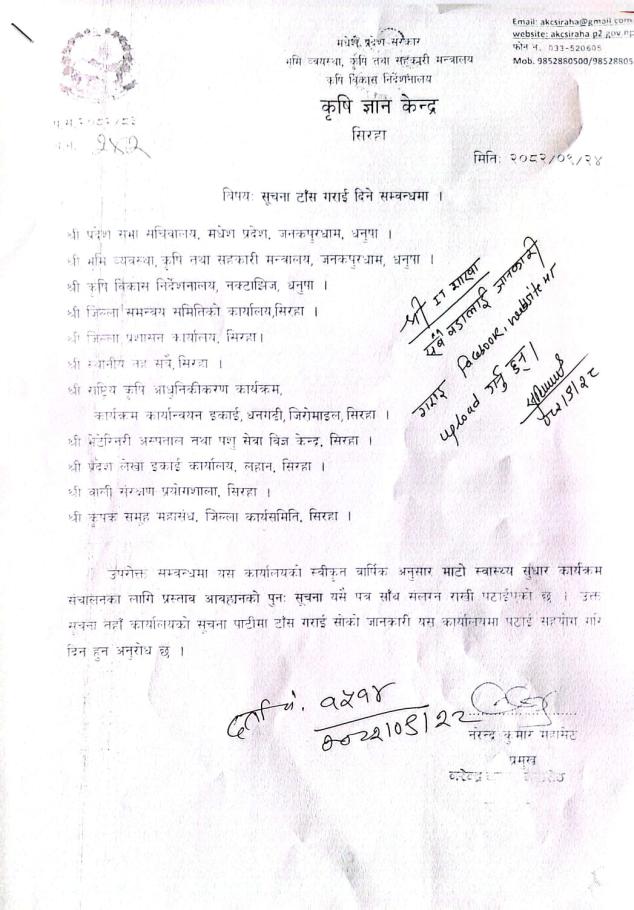 Email: akcsiraha@gmail.com
website: akcsiraha.p2.gov.np
फोन नं. 033-520605
Mob. 9852880500/98528805
मधेश प्रदेश सरकार
भूमि व्यवस्था, कृषि तथा सहकारी मन्त्रालय
कृषि विकास निर्देशनालय
कृषि ज्ञान केन्द्र
सिरहा
प.सं. २०८२/८३
च.नं. २४२
मितिः २०८२/०९/२४
विषयः सूचना टाँस गराई दिने सम्बन्धमा ।
श्री प्रदेश सभा सचिवालय, मधेश प्रदेश, जनकपुरधाम, धनुषा ।
श्री भूमि व्यवस्था, कृषि तथा सहकारी मन्त्रालय, जनकपुरधाम, धनुषा ।
श्री कृषि विकास निर्देशनालय, नक्टाझिज, धनुषा ।
श्री जिल्ला समन्वय समितिको कार्यालय,सिरहा ।
श्री जिल्ला प्रशासन कार्यालय, सिरहा।
श्री स्थानीय तह सबै, सिरहा ।
श्री राष्ट्रिय कृषि आधुनिकीकरण कार्यक्रम,
कार्यक्रम कार्यान्वयन इकाई, धनगढी, जिरोमाइल, सिरहा ।
श्री भेटेरिनरी अस्पताल तथा पशु सेवा विज्ञ केन्द्र, सिरहा ।
श्री प्रदेश लेखा इकाई कार्यालय, लहान, सिरहा ।
श्री वाली संरक्षण प्रयोगशाला, सिरहा ।
श्री कृषक समूह महासंघ, जिल्ला कार्यसमिति, सिरहा ।
श्री IT शाखा
सबै वडालाई जानकारी
गराई Facebook, website मा
upload गर्नु हुन।
उपरोक्त सम्बन्धमा यस कार्यालयको स्वीकृत वार्षिक अनुसार माटो स्वास्थ्य सुधार कार्यक्रम
संचालनका लागि प्रस्ताव आवहानको पुनः सूचना यसै पत्र साँथ संलग्न राखी पठाईएको छ । उक्त
सूचना तहाँ कार्यालयको सूचना पाटीमा टाँस गराई सोको जानकारी यस कार्यालयमा पठाई सहयोग गरि
दिन हुन अनुरोध छ ।
दर्ता नं. १५१४
नरेन्द्र कुमार महासेठ
प्रमुख